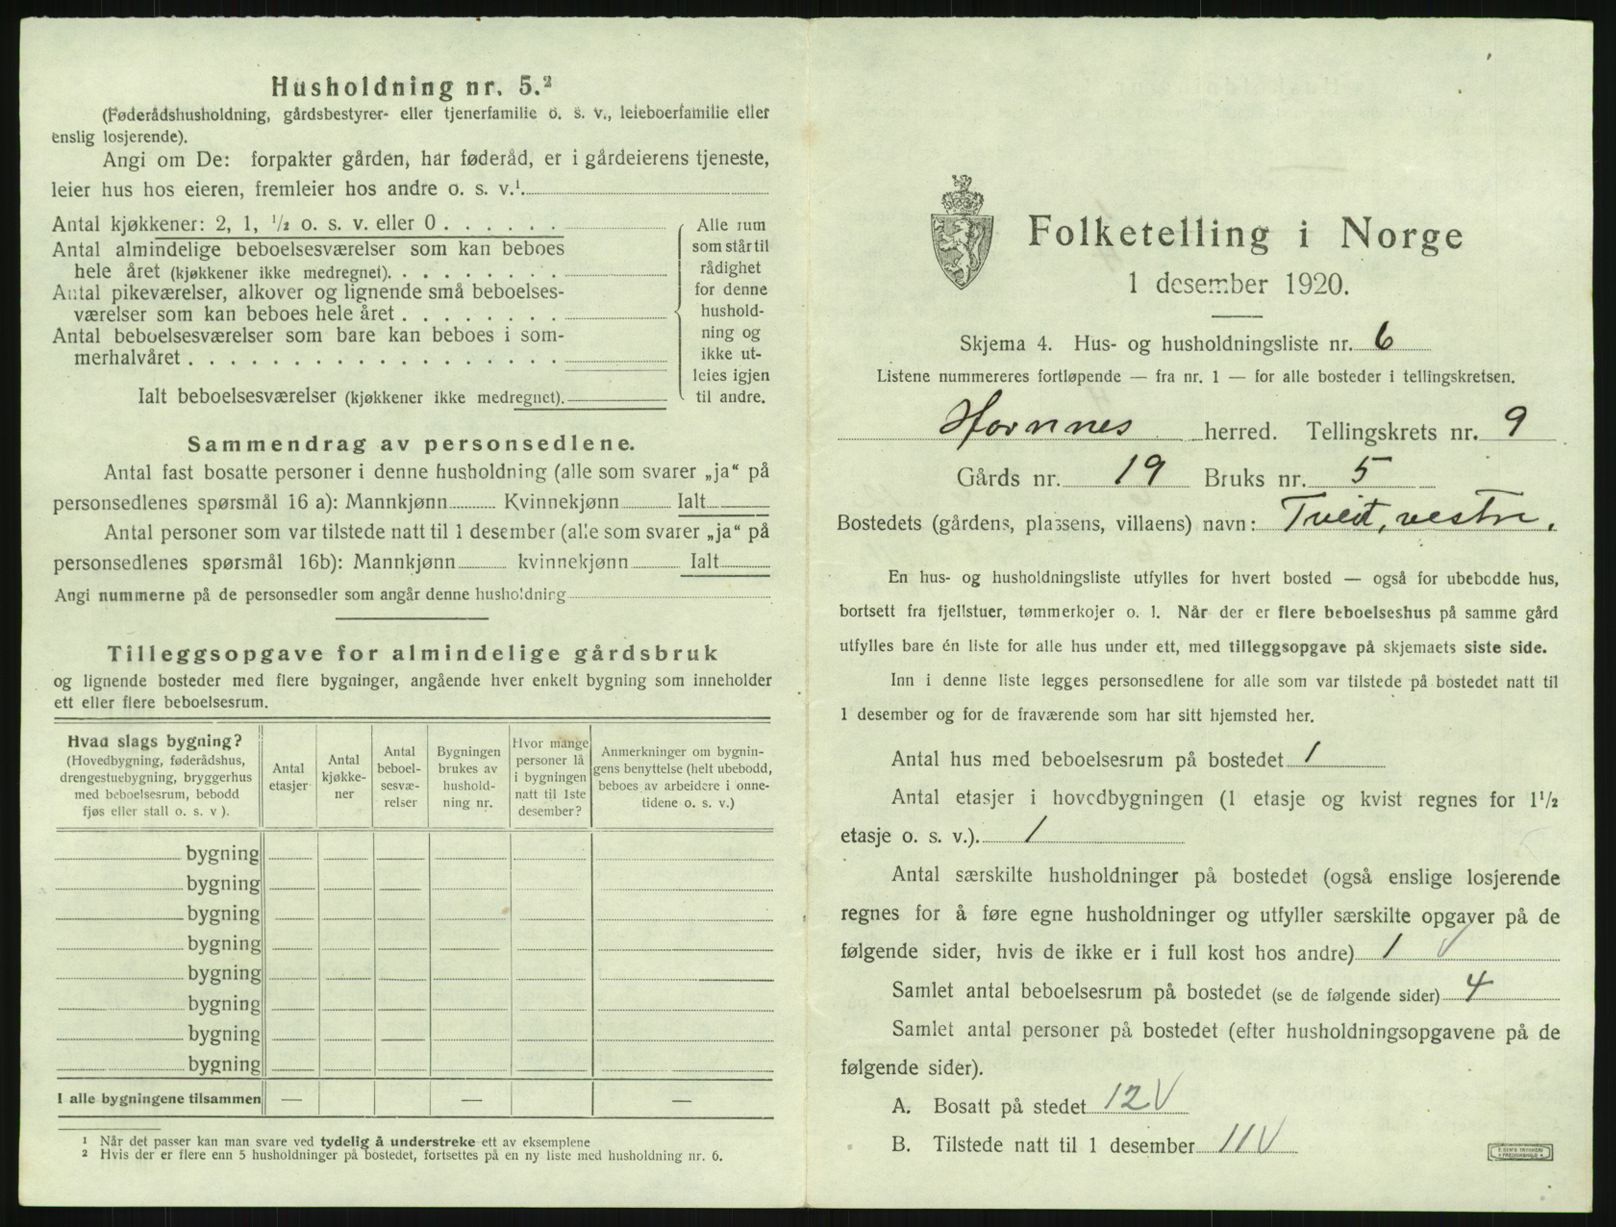 Husholdning nr. 5.²
(Føderådshusholdning, gårdsbestyrer- eller tjenerfamilie o. s. v., leieboerfamilie eller
enslig losjerende).
Angi om De: forpakter gården, har føderåd, er i gårdeierens tjeneste,
leier hus hos eieren, fremleier hos andre o. s. v.¹
Antal kjøkkener: 2, 1, ½ o. s. v. eller 0 . . . . . .
Antal almindelige beboelsesværelser som kan beboes
hele året (kjøkkener ikke medregnet). . . . . . . . .
Antal pikeværelser, alkover og lignende små beboelses-
værelser som kan beboes hele året . . . . . . . .
Antal beboelsesværelser som bare kan beboes i som-
merhalvåret . . . . . . . . . . . . . . . . . .
Ialt beboelsesværelser (kjøkkener ikke medregnet).
Alle rum
som står til
rådighet
for denne
hushold-
ning og
ikke ut-
leies igjen
til andre.
Sammendrag av personsedlene.
Antal fast bosatte personer i denne husholdning (alle som svarer „ja“ på
personsedlenes spørsmål 16 a): Mannkjønn Kvinnekjønn Ialt
Antal personer som var tilstede natt til 1 desember (alle som svarer „ja“ på
personsedlenes spørsmål 16b): Mannkjønn kvinnekjønn Ialt
Angi nummerne på de personsedler som angår denne husholdning
Tilleggsopgave for almindelige gårdsbruk
og lignende bosteder med flere bygninger, angående hver enkelt bygning som inneholder
ett eller flere beboelsesrum.
Hvad slags bygning?
(Hovedbygning, føderådshus,
drengestuebygning, bryggerhus
med beboelsesrum, bebodd
fjøs eller stall o. s. v ).
Antal
etasjer
Antal
kjøkke-
ner
Antal
beboel-
sesvæ-
relser
Bygningen
brukes av
hushold-
ning nr.
Hvor mange
personer lå
i bygningen
natt til 1ste
desember?
Anmerkninger om bygnin-
gens benyttelse (helt ubebodd,
beboes av arbeidere i onne-
tidene o. s. v.)
bygning
bygning
bygning
bygning
bygning
bygning
bygning
bygning
I alle bygningene tilsammen — — —
¹ Når det passer kan man svare ved tydelig å understreke ett av eksemplene
² Hvis der er flere enn 5 husholdninger på bostedet, fortsettes på en ny liste med husholdning nr. 6.
Folketelling i Norge
1 desember 1920.
Skjema 4. Hus- og husholdningsliste nr. 6
Listene nummereres fortløpende — fra nr. 1 — for alle bosteder i tellingskretsen.
Hornnes herred. Tellingskrets nr. 9
Gårds nr. 19 Bruks nr. 5
Bostedets (gårdens, plassens, villaens) navn: Tveit, vestre.
En hus- og husholdningsliste utfylles for hvert bosted — også for ubebodde hus,
bortsett fra fjellstuer, tømmerkojer o. l. Når der er flere beboelseshus på samme gård
utfylles bare én liste for alle hus under ett, med tilleggsopgave på skjemaets siste side.
Inn i denne liste legges personsedlene for alle som var tilstede på bostedet natt til
1 desember og for de fraværende som har sitt hjemsted her.
Antal hus med beboelsesrum på bostedet 1
Antal etasjer i hovedbygningen (1 etasje og kvist regnes for 1½
etasje o. s. v.). 1
Antal særskilte husholdninger på bostedet (også enslige losjerende
regnes for å føre egne husholdninger og utfyller særskilte opgaver på de
følgende sider, hvis de ikke er i full kost hos andre) 1 V
Samlet antal beboelsesrum på bostedet (se de følgende sider) 4
Samlet antal personer på bostedet (efter husholdningsopgavene på de
følgende sider).
A. Bosatt på stedet 12 V
B. Tilstede natt til 1 desember 11 V